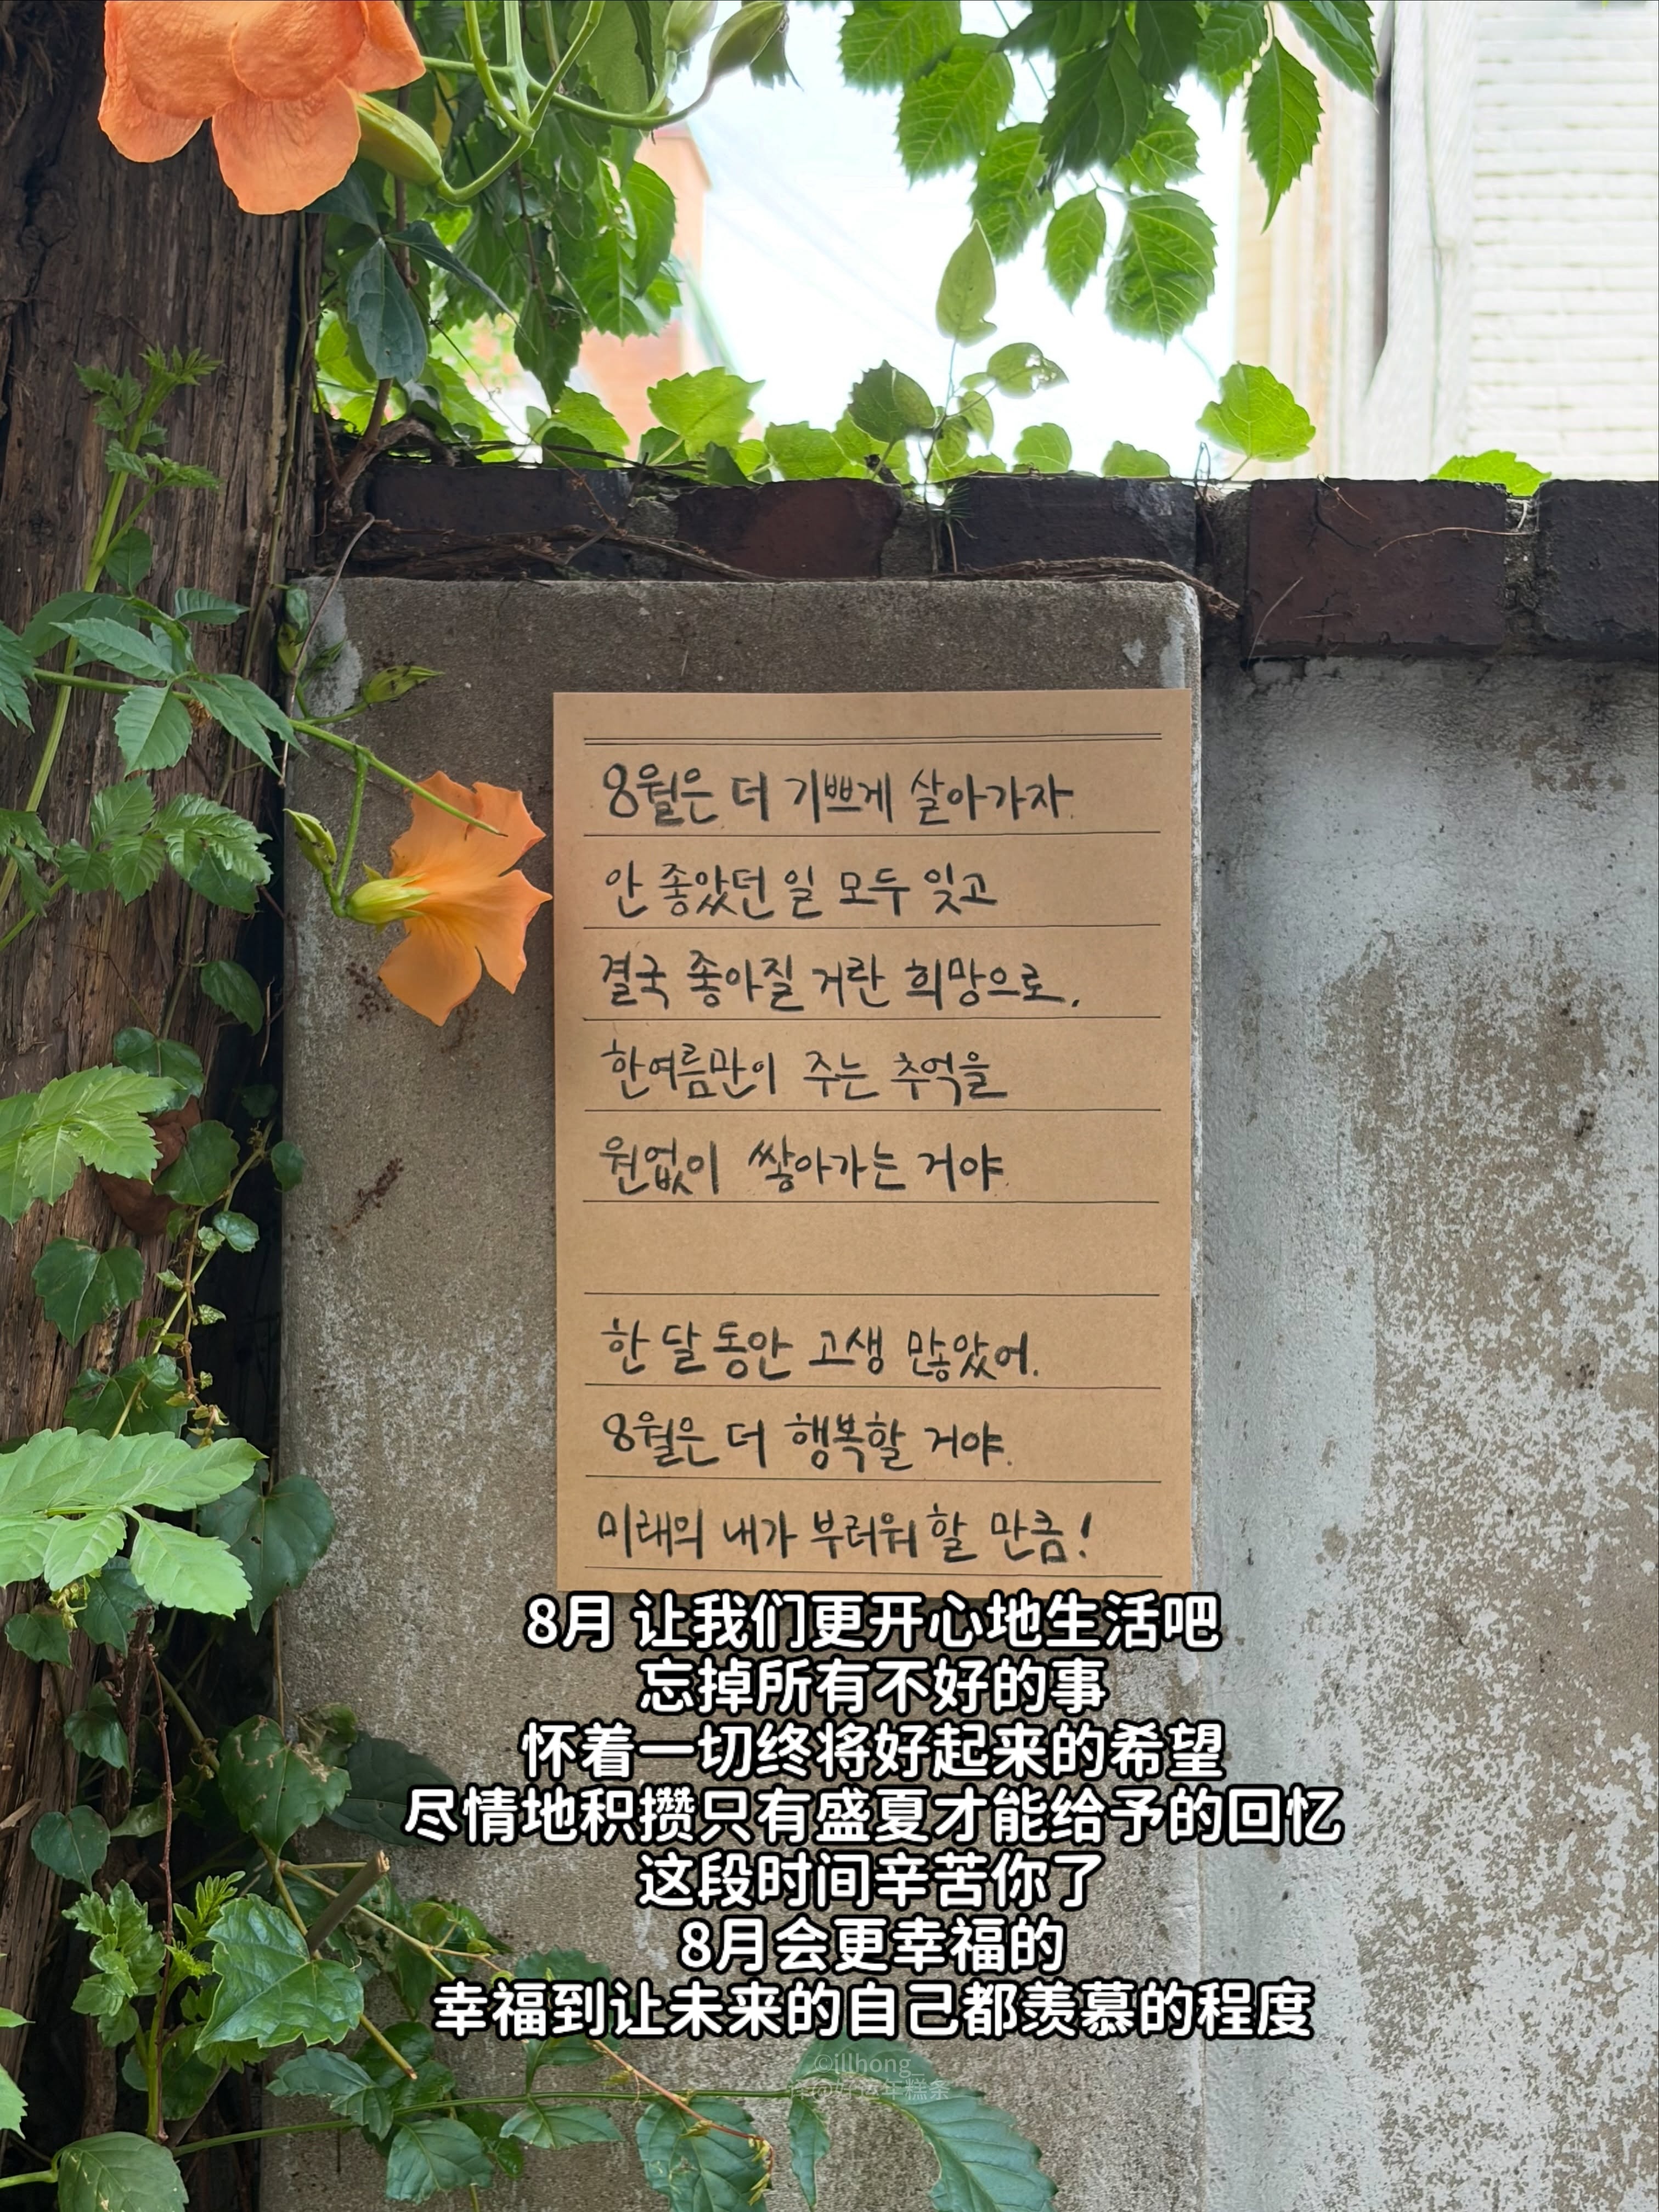 8월은 더 기쁘게 살아가자.
안 좋았던 일 모두 잊고
결국 좋아질 거란 희망으로,
한여름만이 주는 추억을
원없이 쌓아가는 거야.
한 달 동안 고생 많았어.
8월은 더 행복할 거야.
미래의 내가 부러워 할 만큼!
8月 让我们更开心地生活吧
忘掉所有不好的事
怀着一切终将好起来的希望
尽情地积攒只有盛夏才能给予的回忆
这段时间辛苦你了
8月会更幸福的
幸福到让未来的自己都羡慕的程度
©illhong
好运年糕条